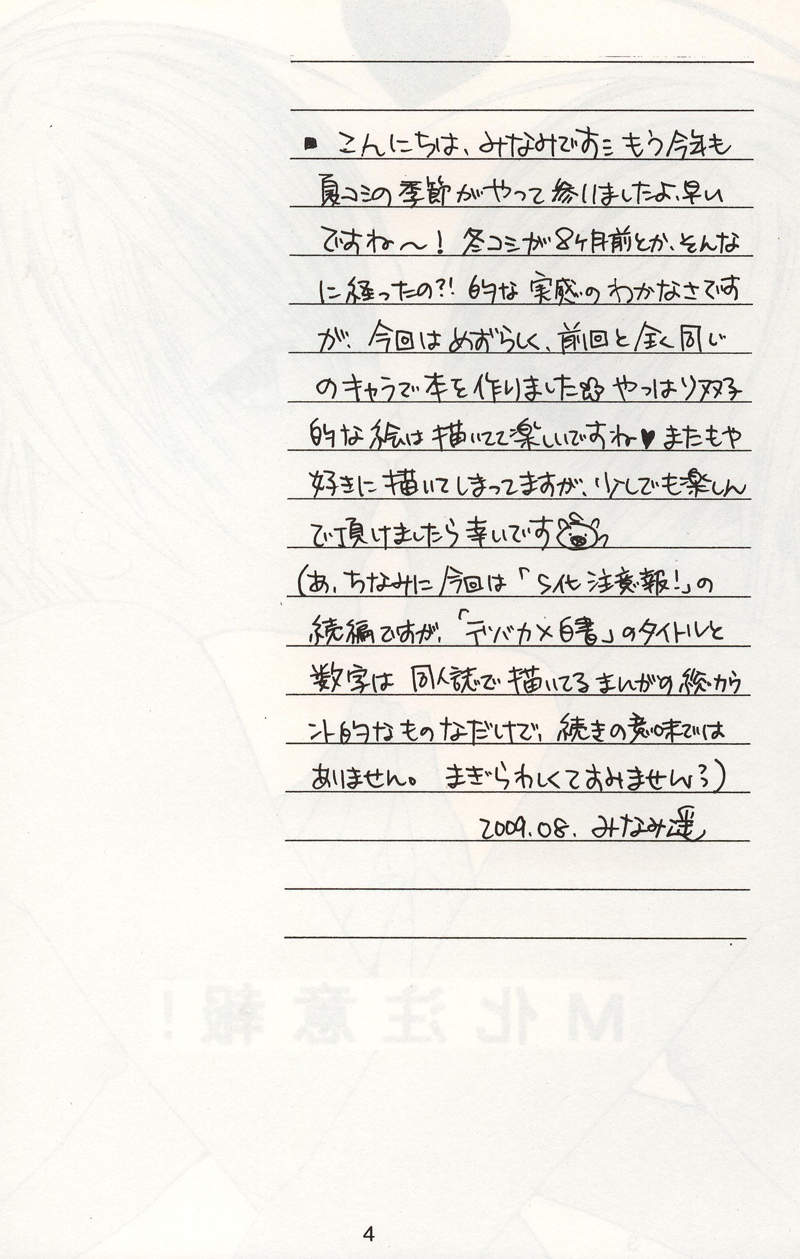 ■ こんにちは、みなみです。もう今年も
夏コミの季節がやって参りましたよ、早い
ですね〜！ 冬コミが8ヶ月前とか、そんな
に経ったの?! 的な 実感のわかなさです
が、今回はめずらしく、前回と全く同じ
のキャラで本を作りました やっぱり双子
的な絵は描いてて楽しいですね♥ またもや
好きに描いてしまってますが、少しでも楽しん
で頂けましたら幸いです
(あ、ちなみに今回は「S化注意報!」の
続編ですが、「デバカメ白書」のタイトルと
数字は 同人誌で描いてるまんがの総カウ
ント的なものなだけで、続きの意味では
ありません。 まぎらわしくてすみません)
2009.08. みなみ遥
M化注意報!
4